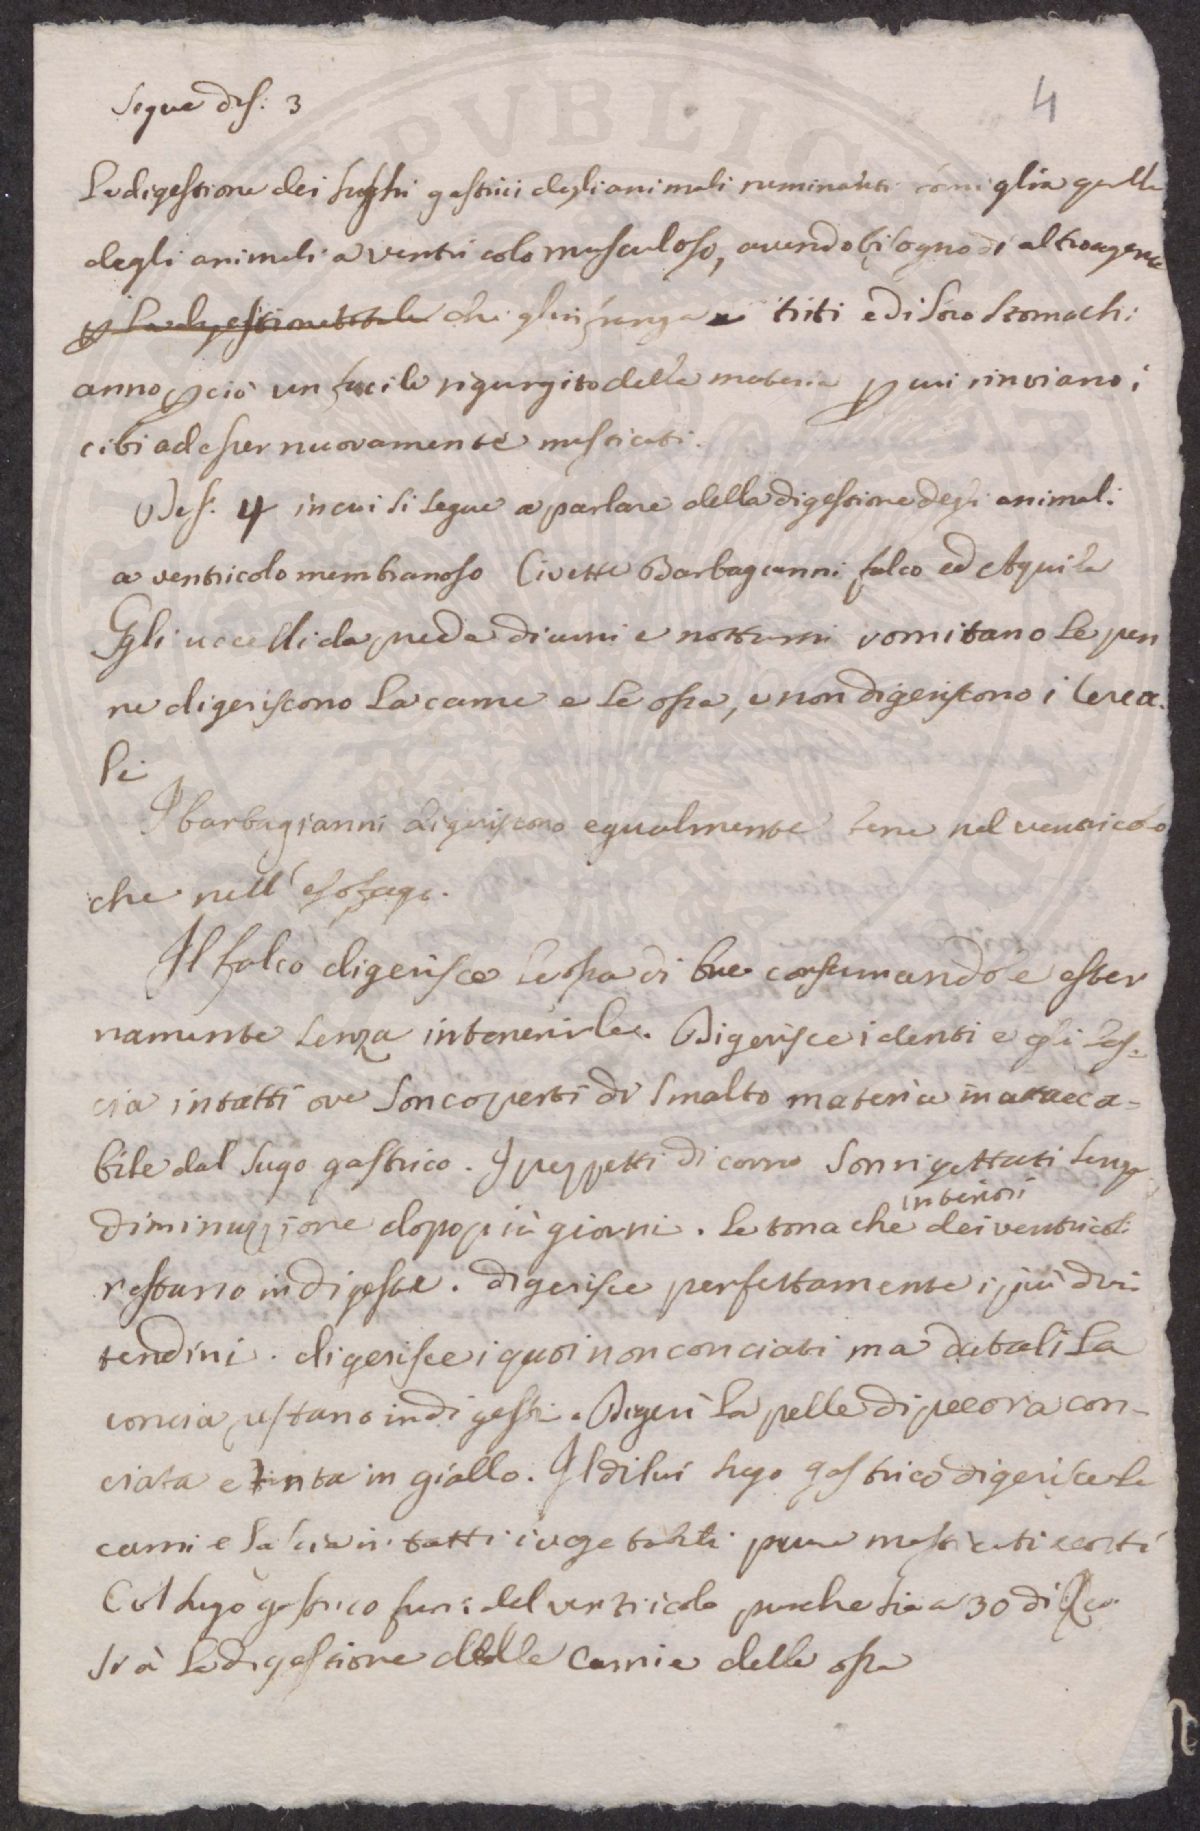 Segue des: 3
4
La digestione dei sughi gastrici degli animali ruminanti somiglia quella
degli animali a ventricolo musculoso, avendo bisogno di altro agente
che gl'infranga e triti e di loro stomachi
anno perciò un facile rigurgito della materia per cui rinviano i
cibi ad esser nuovamente masticati.
Des: 4 in cui si segue a parlare della digestione degli animali
a ventricolo membranoso Civette Barbagianni falco ed Aquila
Gli uccelli da preda diurni e notturni vomitano le pen
ne digeriscono la carne e le ossa, e non digeriscono i Cerea-
li
I barbagianni digeriscono egualmente bene nel ventricolo
che nell'esofago.
Il falco digerisce le ossa di bue consumandole ester
namente senza intenerirle. Digerisce i denti e gli las-
cia intatti ove son coperti di smalto materia inattacca-
bile dal sugo gastrico. I pezzetti di corno son rigettati senza
diminuzione dopo più giorni. Le tonache interiori dei ventricoli
restano indigeste. digerisce perfettamente i più duri
tendini. digerisce i quoi non conciati ma da tali la
concia restano indigesti. Digerì la pelle di pecora con-
ciata e tinta in giallo. Il di lui sugo gastrico digerisce le
carni e lascia intatti i vegetabili pure masticati e cotti
Col sugo gastrico fuori del ventricolo purche sia a 30 di
si à la digestione delle carni e delle ossa